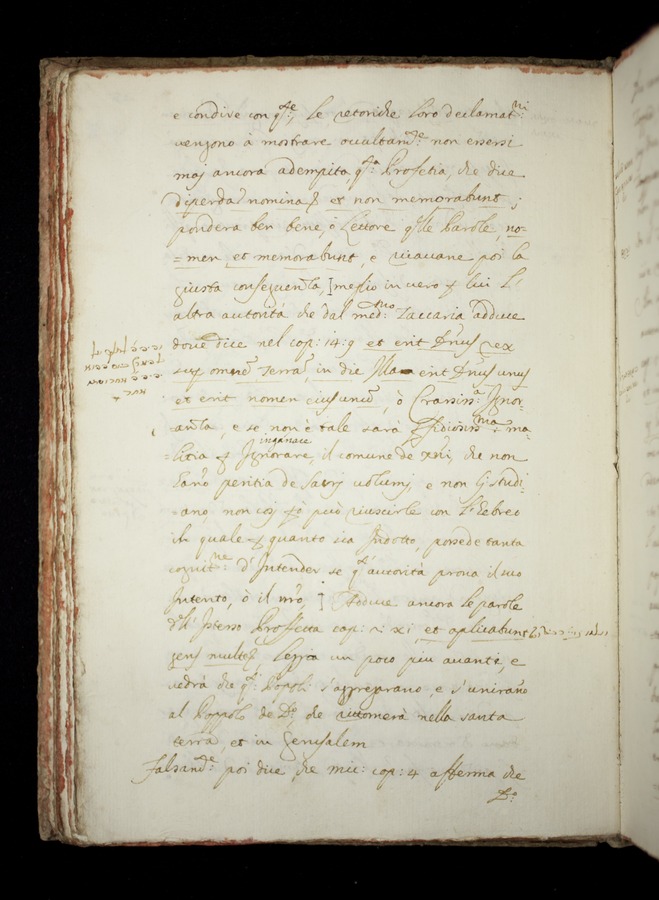 e condire con q.ste, le retoriche loro declamat.ni
vengono à mostrare occultam.te non essersi
maj ancora adempita q.sta Profetia, che dice
diperdã nomina & et non memorabunt;
pondera ben bene, ò Lettore q.lle Parole, no-
=men et memorabunt, e ricavane poi la
giusta conseguenza, meglio in vero p lui l'
altra autorità che dal med.mo Zaccaria adduce
dove dice nel cap: 14: 9 et erit Dñus rex
sup omnẽ terrã, in die Illa erit Dñus unus
et erit nomen eius unũ, ò Crassiss.a Ignor-
anza, e se non è tale sarà p.fidiosiss.ma ma-
=litia p Ignorare, il comune de xñi, che non
inganare
hano peritia de sacrj volumj, e non li studi-
ano, non cosi p ò può riuscirle con l'Hebreo
il quale p quanto sia Indotto, possede tanta
cognit.ne d'Intender se q.sta autorità prova il suo
Intento, ò il ñro, Adduce ancora le parole
d'l Istesso Proffetta cap: xi, et aplicabunt
gens multe, legga un poco piu avanti, e
vedrà che q.ti Popoli s'aggregarano, e s'unirano
al Poppolo de D.o, che ritornerà nella santa
terra, et in Gerusalem
Falsam.te poi dice che mic: cap: 4 afferma che
D.o